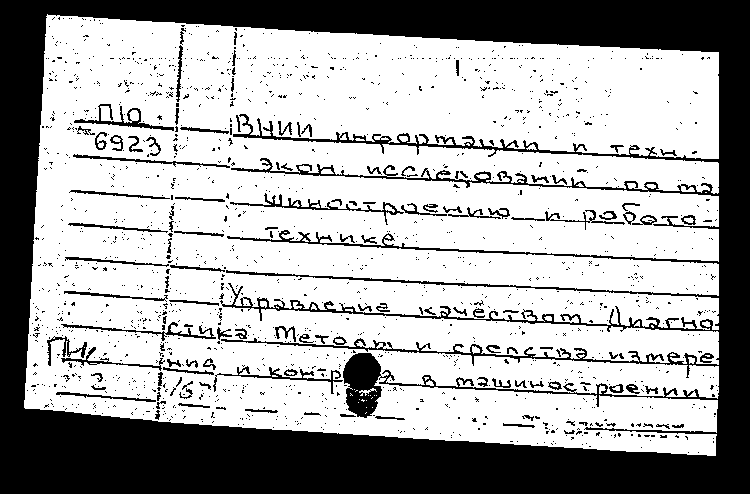 П10
6923
ВНИИ информации и техн.-
экон. исследований по ма
шиностроению и робото-
технике.
Управление качеством. Диагно-
стика. Методы и средства измере
ния и контр я в машиностроении:
ПНК
2 15